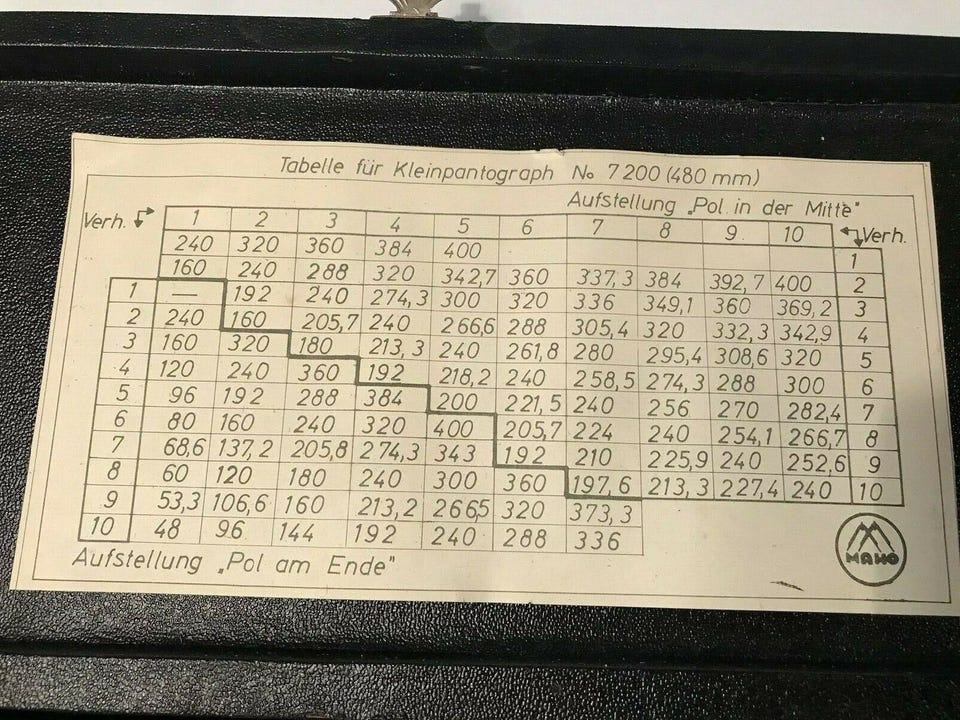 Tabelle für Kleinpantograph No 7200 (480 mm)
Aufstellung „Pol in der Mitte"
Verh. 1 2 3 4 5 6 7 8 9 10 Verh.
240 320 360 384 400 1
160 240 288 320 342,7 360 337,3 384 392,7 400 2
1 — 192 240 274,3 300 320 336 349,1 360 369,2 3
2 240 160 205,7 240 266,6 288 305,4 320 332,3 342,9 4
3 160 320 180 213,3 240 261,8 280 295,4 308,6 320 5
4 120 240 360 192 218,2 240 258,5 274,3 288 300 6
5 96 192 288 384 200 221,5 240 256 270 282,4 7
6 80 160 240 320 400 205,7 224 240 254,1 266,7 8
7 68,6 137,2 205,8 274,3 343 192 210 225,9 240 252,6 9
8 60 120 180 240 300 360 197,6 213,3 227,4 240 10
9 53,3 106,6 160 213,2 266,5 320 373,3
10 48 96 144 192 240 288 336
Aufstellung „Pol am Ende"
MAHO